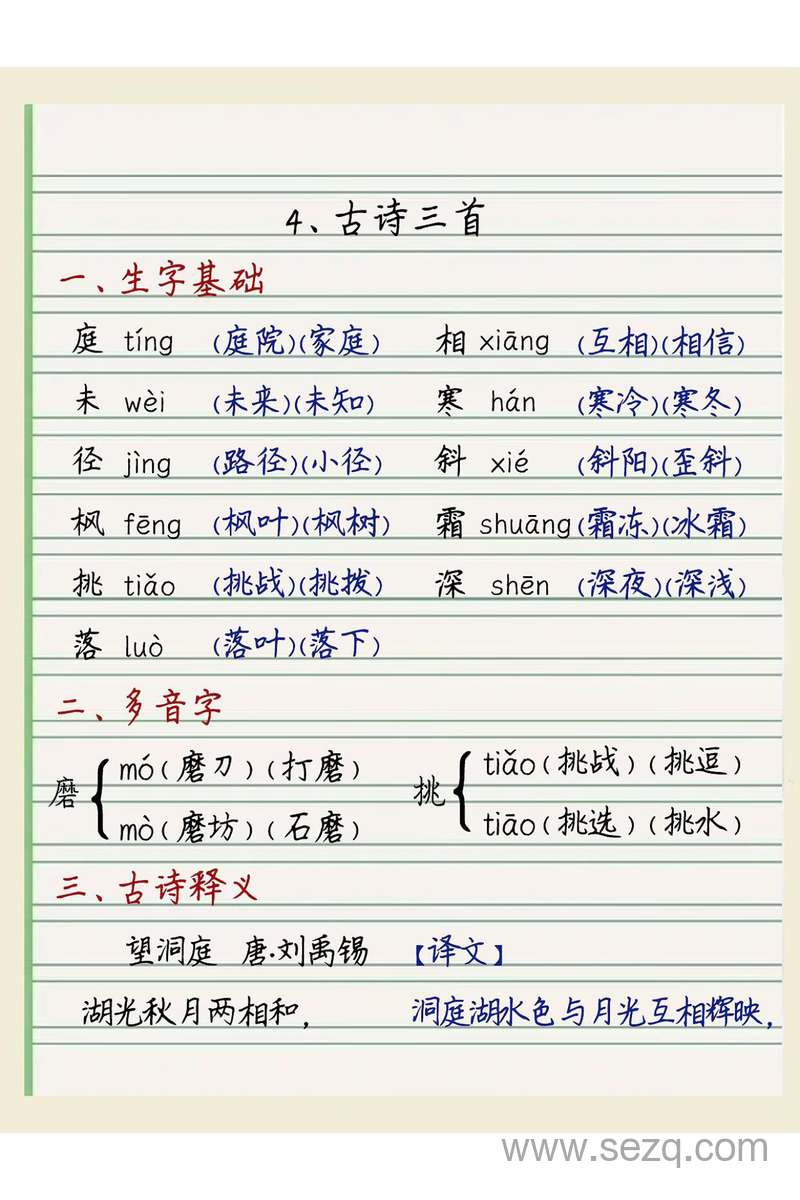 4、古诗三首
一、生字基础
庭 tíng （庭院）（家庭） 相 xiāng （互相）（相信）
未 wèi （未来）（未知） 寒 hán （寒冷）（寒冬）
径 jìng （路径）（小径） 斜 xié （斜阳）（歪斜）
枫 fēng （枫叶）（枫树） 霜 shuāng （霜冻）（冰霜）
挑 tiǎo （挑战）（挑拨） 深 shēn （深夜）（深浅）
落 luò （落叶）（落下）
二、多音字
磨 { mó（磨刀）（打磨） 挑 { tiǎo（挑战）（挑逗）
mò（磨坊）（石磨） tiāo（挑选）（挑水）
三、古诗释义
望洞庭 唐·刘禹锡 【译文】
湖光秋月两相和， 洞庭湖水色与月光互相辉映，
www.sezq.com